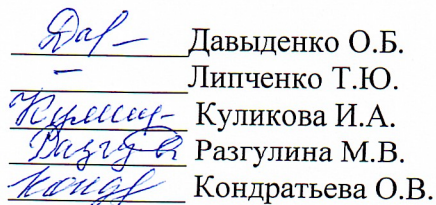 Давыденко О.Б.
– Липченко Т.Ю.
Куликова И.А.
Разгулина М.В.
Кондратьева О.В.